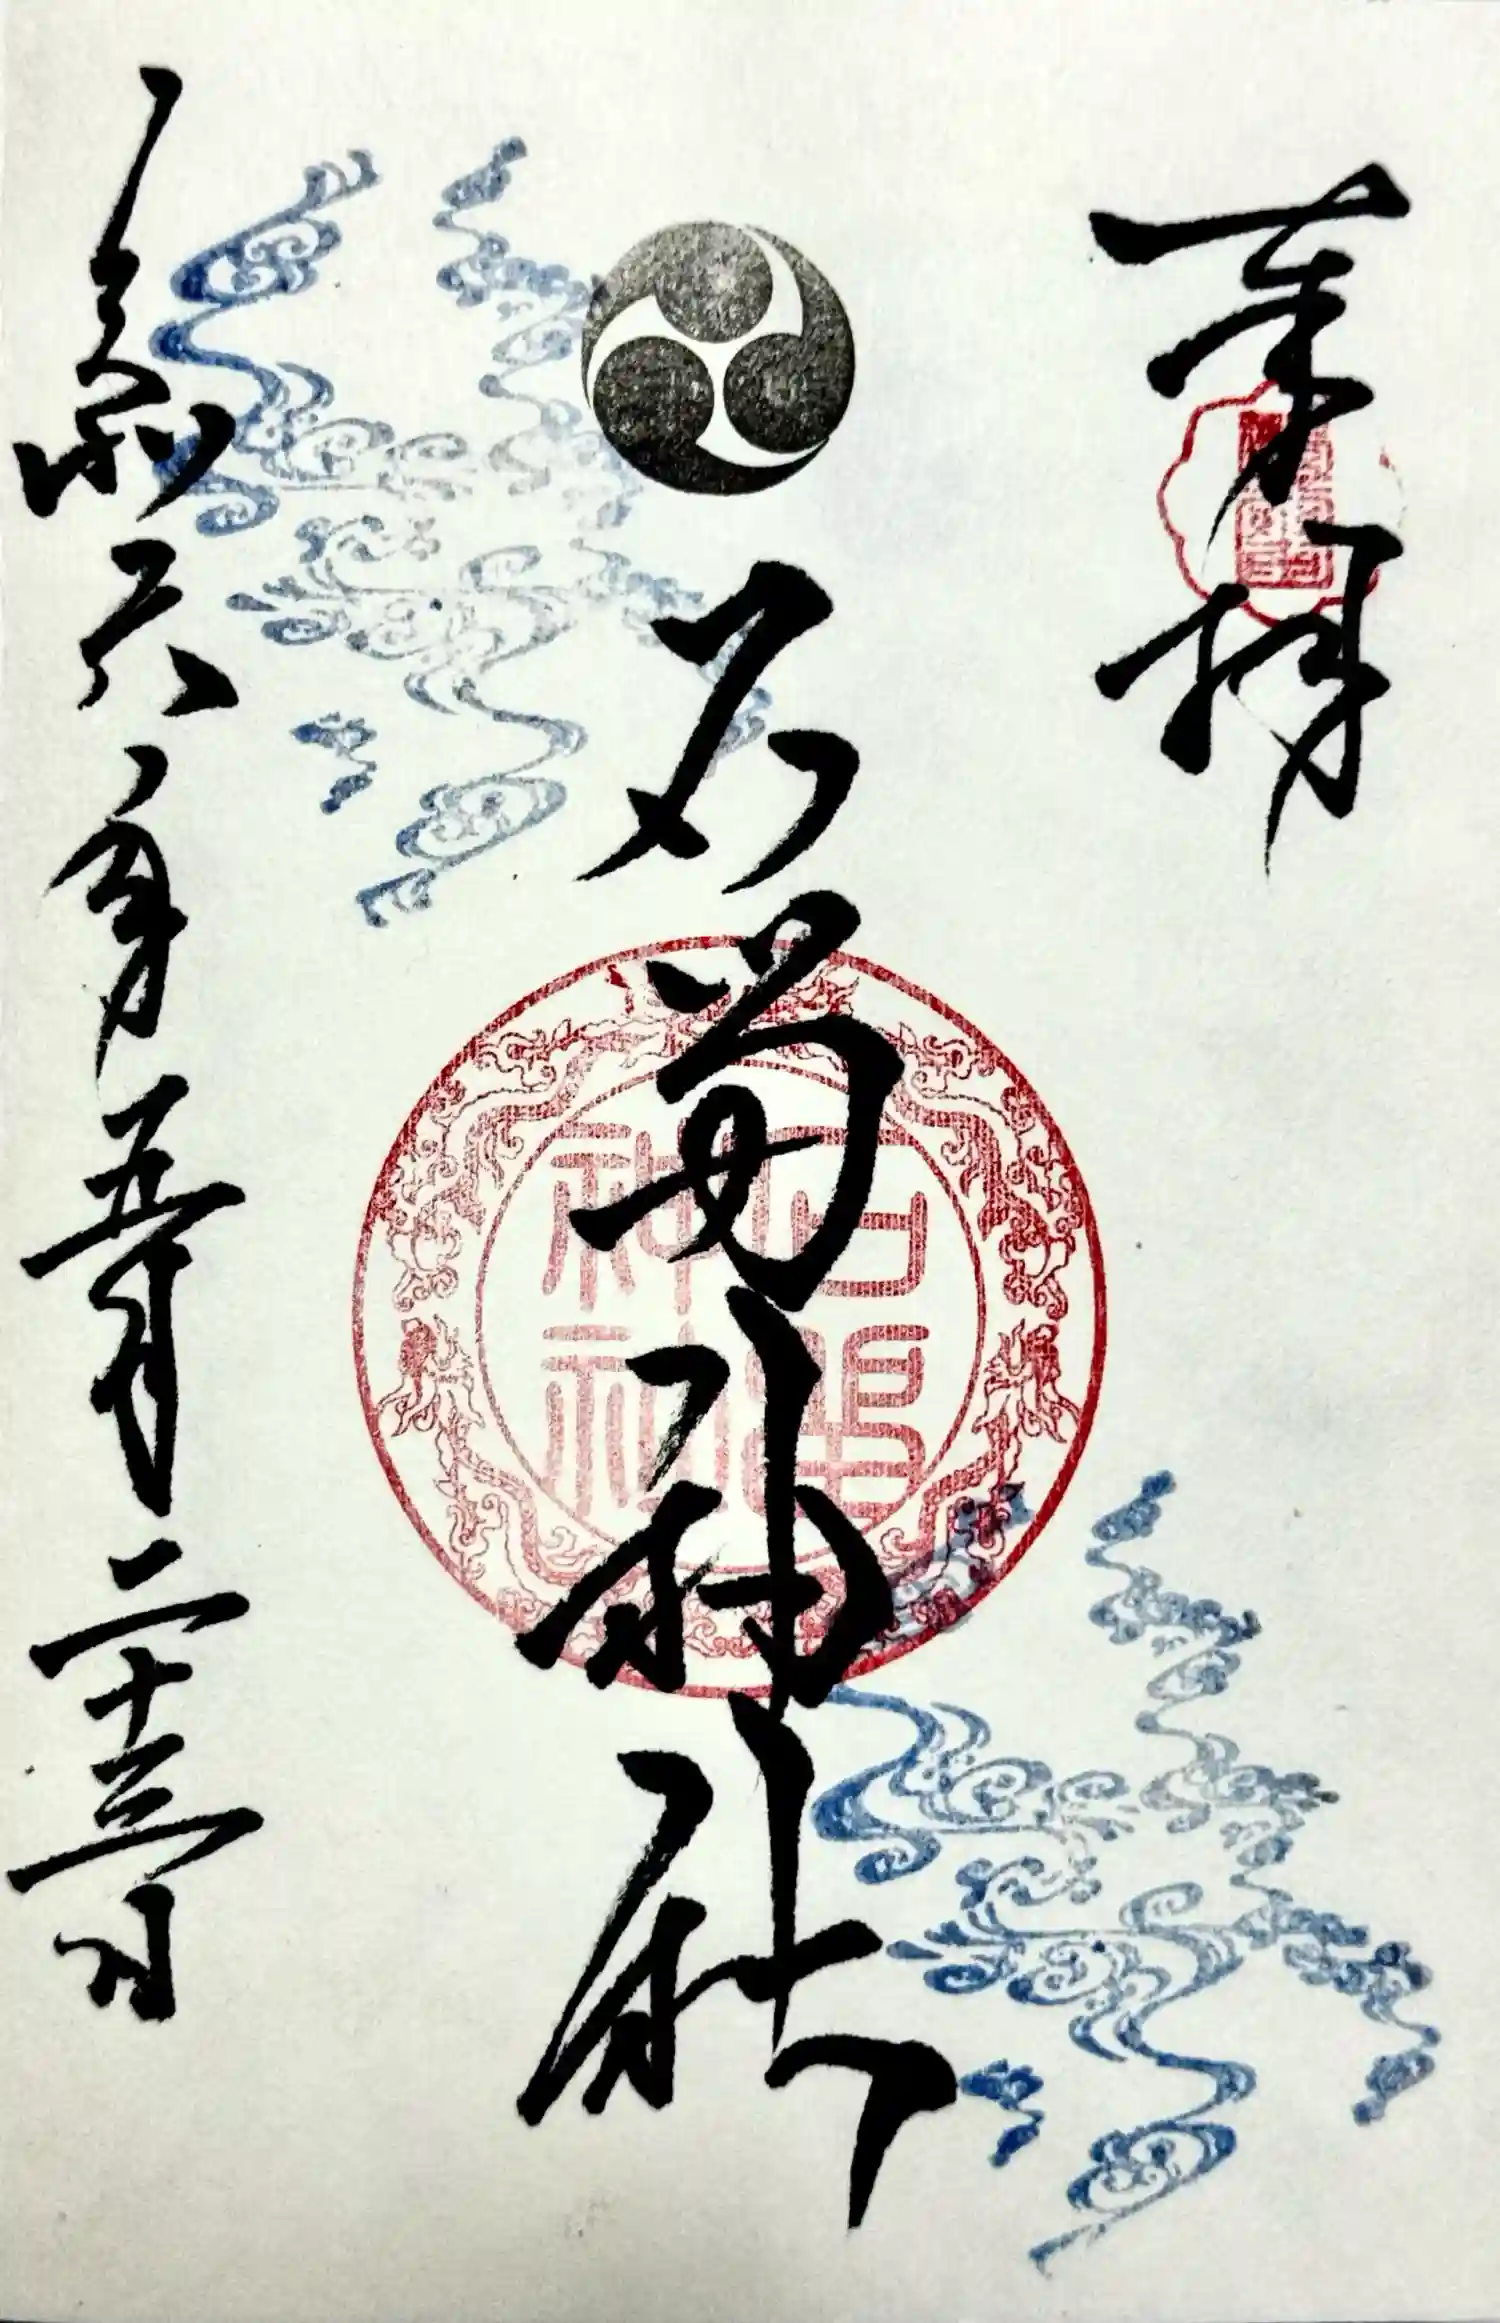 奉拝
石神社
令和六年五月二十三日